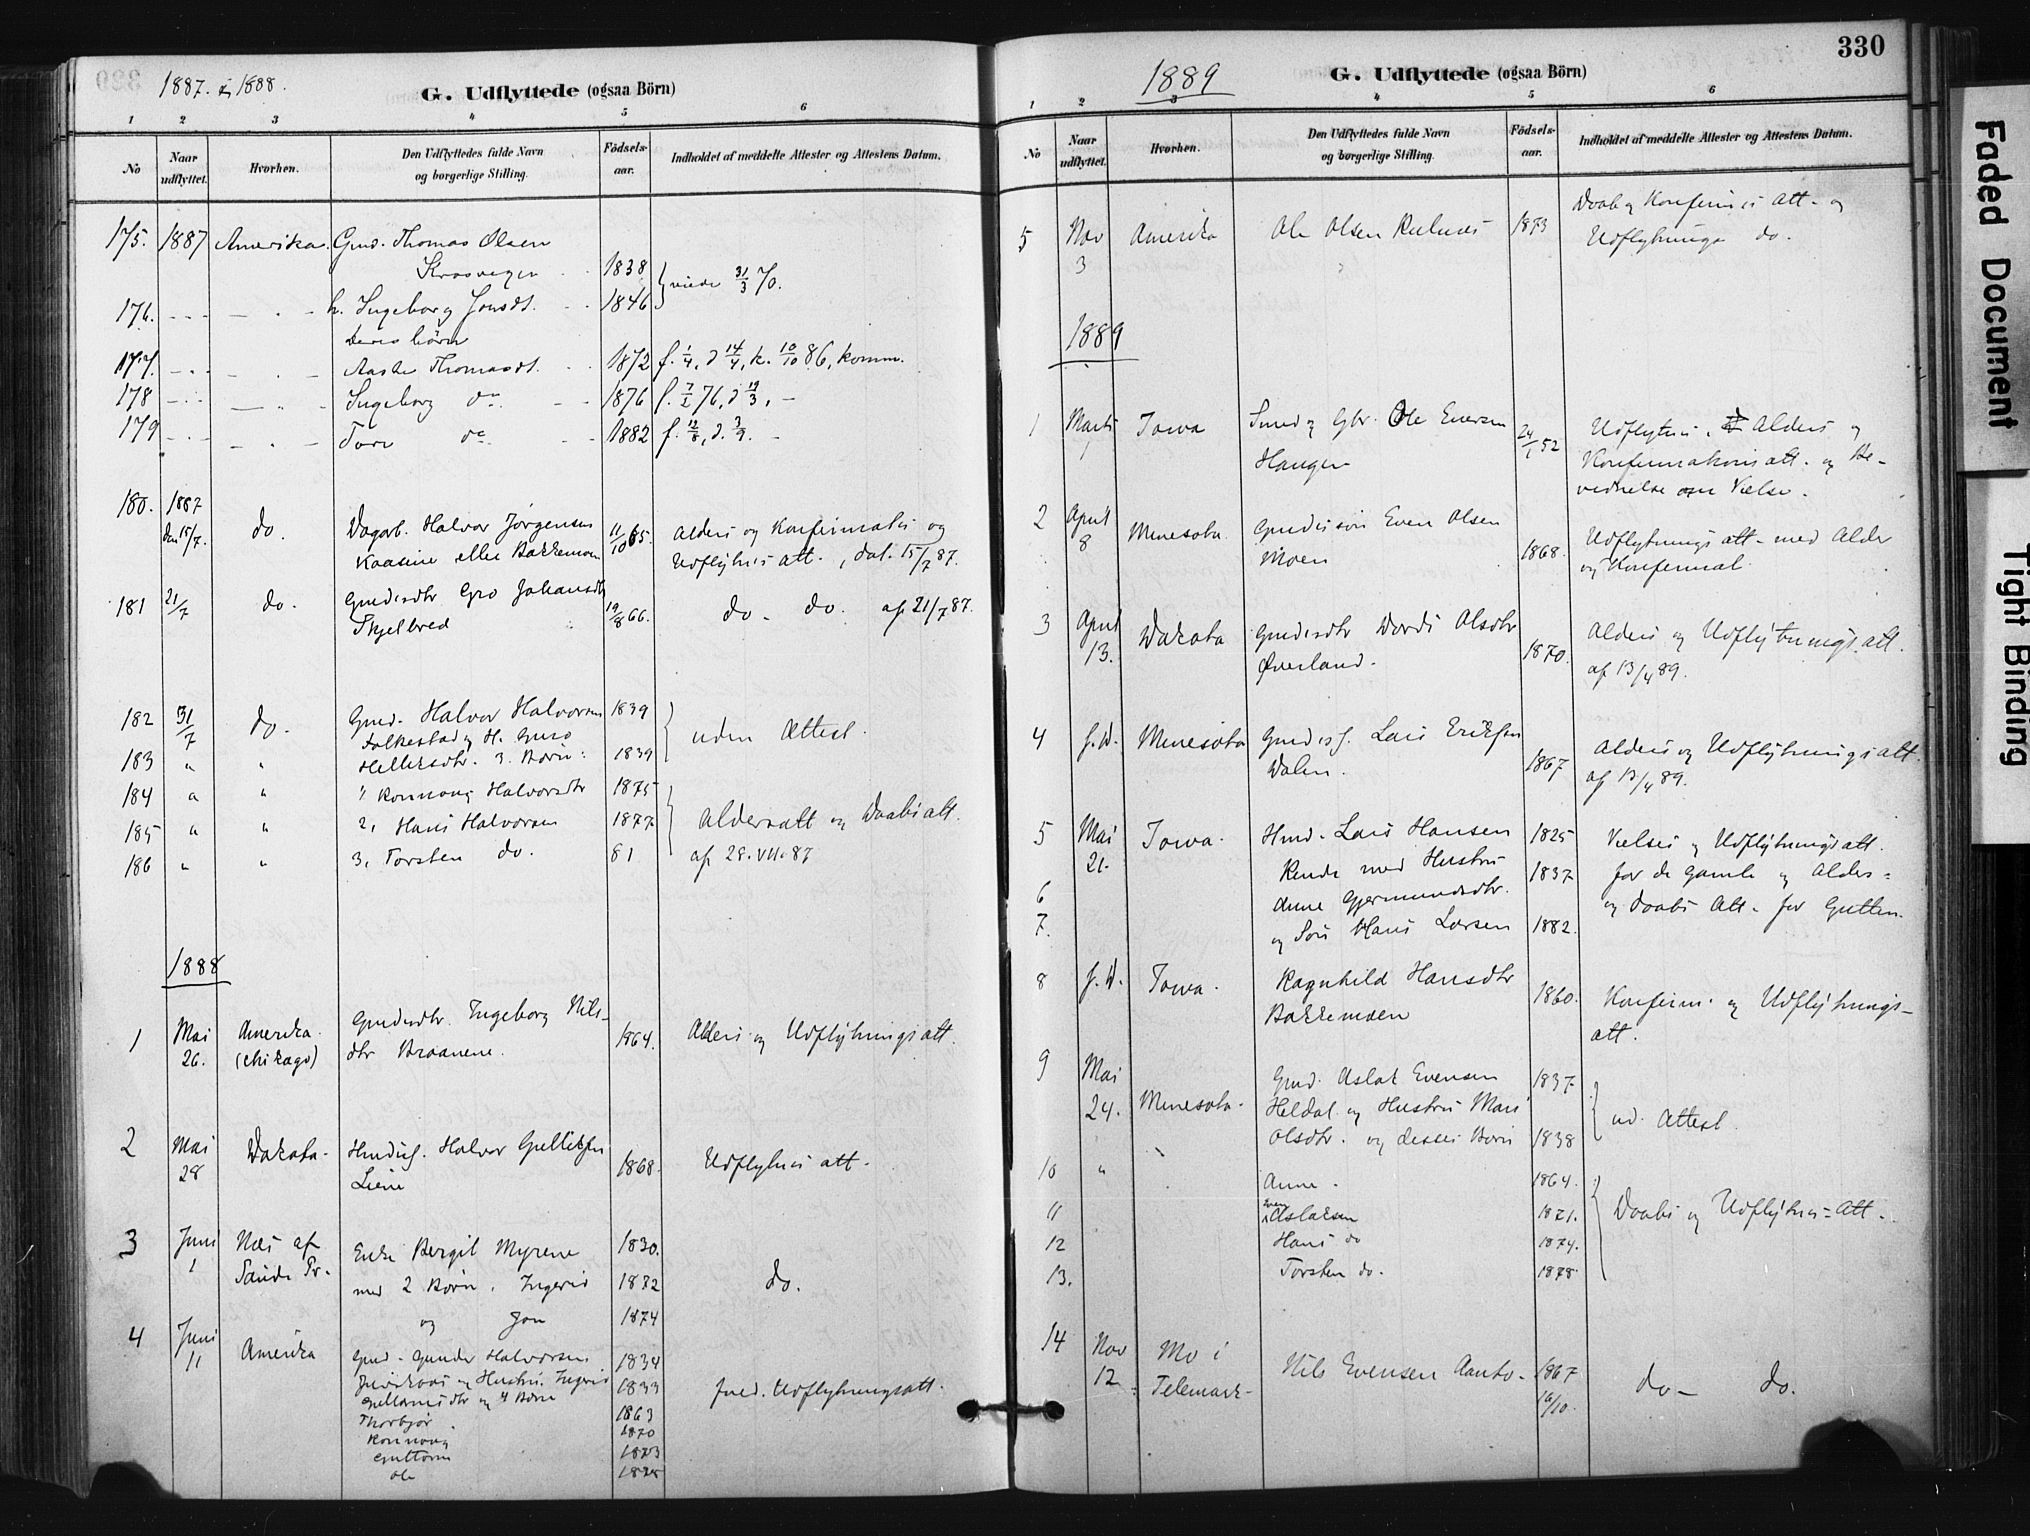 1887. & 1888.
G. Udflyttede (ogsaa Börn)
1 2 3 4 5 6
No
Naar udflyttet.
Hvorhen.
Den Udflyttedes fulde Navn og borgerlige Stilling.
Fødsels-aar.
Indholdet af meddelte Attester og Attestens Datum.
175. 1887 Amerika. Gmd. Thomas Olsen
1838
viede 31/3 70.
176. h. Ingeborg Jonsdt. 1846
deres börn
177. Aaste Thomasdt. 1872 f. 1/4, d 14/4, k. 10/10 86, komm.
178 Ingeborg do 1876 f. 7/2 76, d 19/3, -
179 Tore do 1882 f. 12/8, d. 3/9. -
180. 1887 den 15/7. do. Dagarb. Halvor Jørgensen 11/10 65. Alders og Konfirmatis og
Kaasine eller Bakkemoen Udflytnis att., dat. 15/7 87.
181 21/7 do. Gmdsdtr Gro Johansdtr 19/8 66. do - do. af 21/7 87.
Skjelbred
182 31/7 do. Gmd. Halvor Halvorsen 1839
Folkestad og H. Guro uden Attest.
183 " " Helleksdtr. 3 Børn: 1839
184 " " 1, Ronnaug Halvorsdtr 1875
185 " " 2, Hans Halvorsen 1877 Aldersatt og Daabsatt.
186 " " 3, Torsten do. 81 af 28.VII.87
1888
1 Mai 26. Amerika (Chikago) Gmdsdtr. Ingeborg Nils-
dtr Braanene. 1864. Alders og Udflytningsatt.
2 Mai 28 Dakota- Halvor Gulliksen
Liene 1868. Udflytnis att.
3 Juni 1 Næs af Enke Bergit Myrene 1830.
Saude Pr. med 2 Børn, Ingerid 1872 do.
og Jon 1874
4 Juni 11 Amerika Gmd. Gunder Halvorsen 1834
og Hustru Ingerid 1833 Udflytningsatt.
og 4 Børn
Thorbjør 1863
Ronnaug 1870
Guttorm 1873
Ole
330
1889
G. Udflyttede (ogsaa Börn)
1 2 3 4 5 6
No
Naar udflyttet.
Hvorhen.
Den Udflyttedes fulde Navn og borgerlige Stilling.
Fødsels-aar.
Indholdet af meddelte Attester og Attestens Datum.
5 Nov 3 Amerika Ole Olsen 1873 Daab og Konfirmis Att- og
Udflytnings do.
1889
1 Marts 7 Iowa Smed og Gbr. Ole Evensen 24/1 52 Udflytnis, Alders og
Haugen Konfirmationsatt. og Be-
vidnelse om Vielse.
2 April 8 Minesota Gmdssøn Even Olsen
Moen 1868. Udflytningsatt- med Alder
og Konfirmat.
3 April 13. Dakota Gmdsdtr Dordi Olsdtr
Øverland. 1870. Alders og Udflytningsatt.
af 13/4 89.
4 s. D. Minesota Gmdss. Lars Eriksen
Dalen. 1867 Alders og Udflytningsatt.
af 13/4 89.
5 Mai 21. Iowa. Hmd. Lars Hansen 1825 Vielses og Udflytningsatt.
Rende med Hustru 1837 for de gamle og Alders-
6 Anne Gjermundsdtr. og Daabs Att- for Gutten.
7. og Søn Hans Larsen 1882.
8 s. D. Iowa. Ragnhild Hansdtr
Bakkemoen 1860. Konfirm. og Udflytnings-
att.
9 Mai 24. Minesota- Gmd. Aslak Evensen 1837
Heldal og Hustru Mari ud. Attest.
Olsdtr. og desses Børn 1838
10 " Anne. 1864.
11 Even Aslaksen 1871. Daabs og Udflytnis-Att.
12 Hans do 1874.
13. Torsten do. 1878.
14 Nov 12 Mo i
Telemark- Nils Evensen Aanto- 1867 16/10. do- do.
Faded Document
Tight Binding